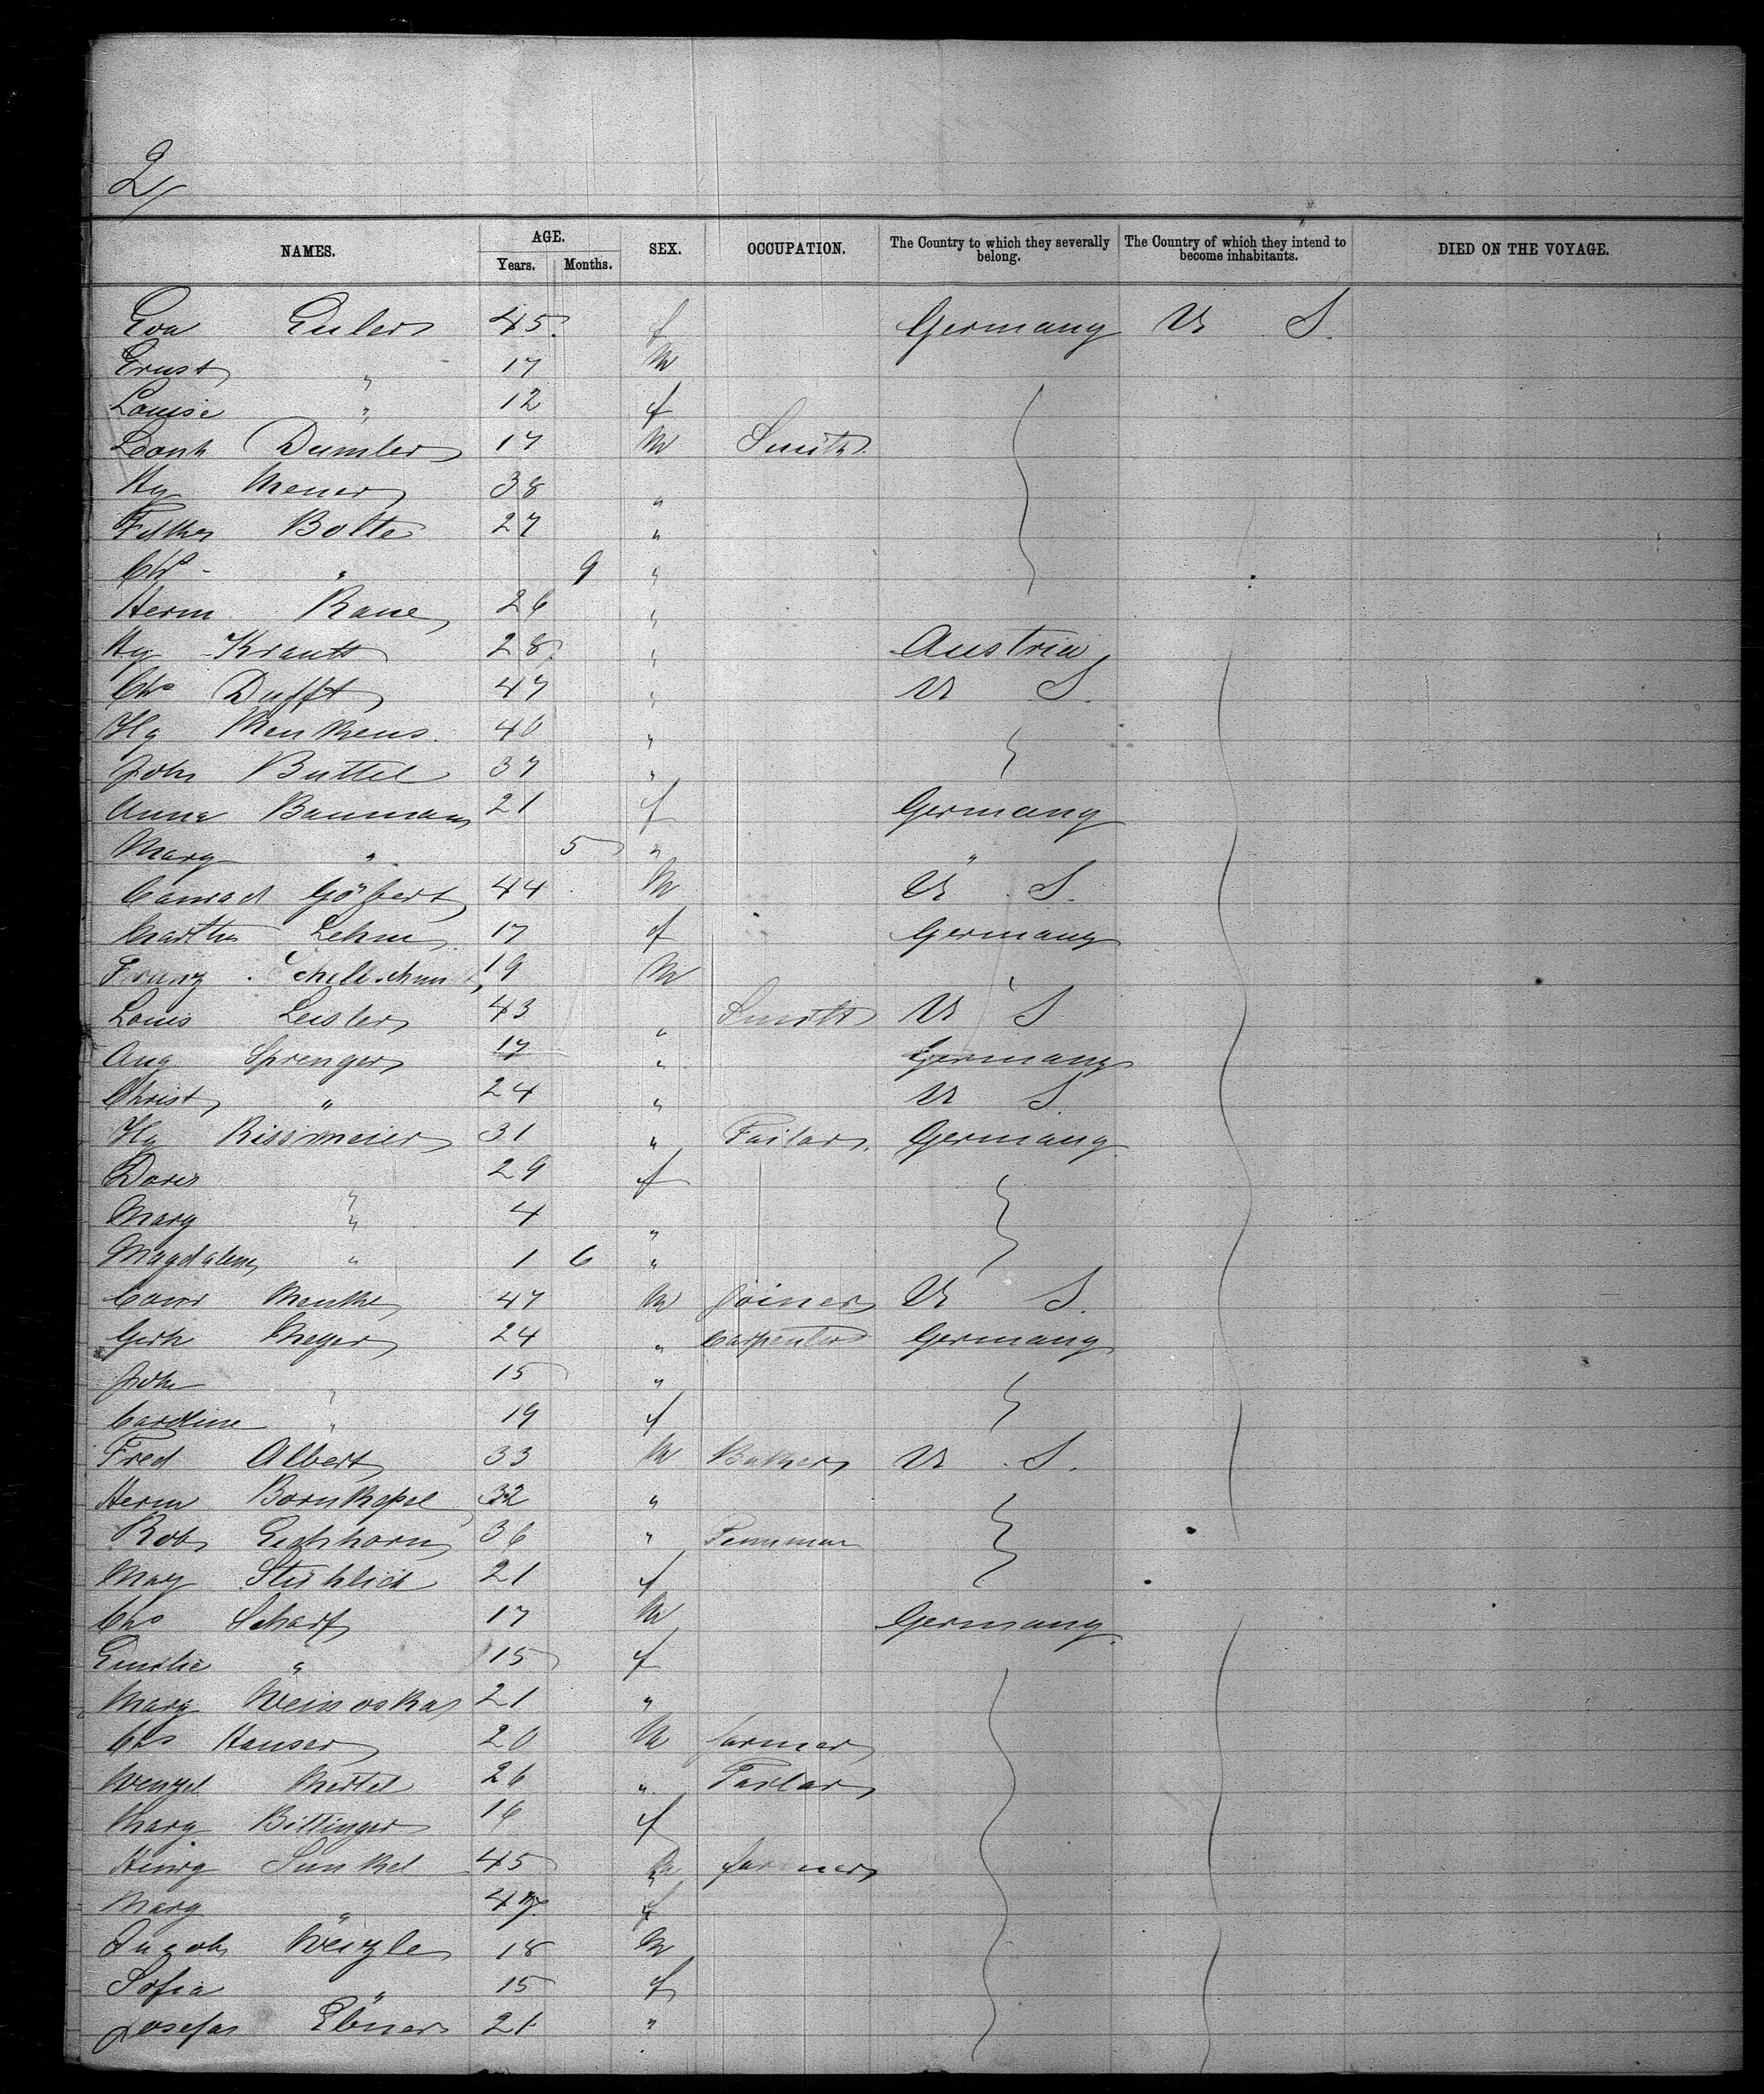 2/
NAMES. AGE. SEX. OCCUPATION. The Country to which they severally belong. The Country of which they intend to become inhabitants. DIED ON THE VOYAGE.
Years. Months.
Eva Euler 45 f Germany U S.
Ernst " 17 M
Louise " 12 f
Leonh Dumler 17 M Smith
Hy Meyer 38 "
Bolte 27 "
Chs " 9 "
Herm Raue 26 "
Hy Krautt 28 " Austria
Chs Dufft 47 " U S.
Hy Menkens 40 "
John Buttel 37 "
Anna Baumann 21 f Germany
Mary " 5 " "
Conrad Göbert 44 M U S.
Martha Lehm 17 f Germany
Franz 19 M "
Louis Leisler 43 " Smith U S
Aug Sprenger 17 " Germany
Christ " 24 " U S.
Hy Rissmeier 31 " Tailor Germany
Dores " 29 f
Mary " 4 "
Magdalena " 1 6 "
Conr Menthe 47 M Joiner U S.
Gerh Meyer 24 " Carpenter Germany
John " 15 "
Caroline " 19 f
Fred Albert 33 M Baker U S.
Herm Bornkapel 32 "
Rob Eichhorn 36 "
Mary Stühlich 21 f
Chs Scharf 17 M Germany
Emilie " 15 f
Mary Weinoskas 21 "
Chs Hauser 20 M farmer
Wenzel Mertel 26 " Tailor
Marg Bittinger 16 f
Henry Sunkel 45 M farmer
Marg " 47 f
Jacob Weizle 18 M
Sofia " 15 f
Josefa Ebner 21 "